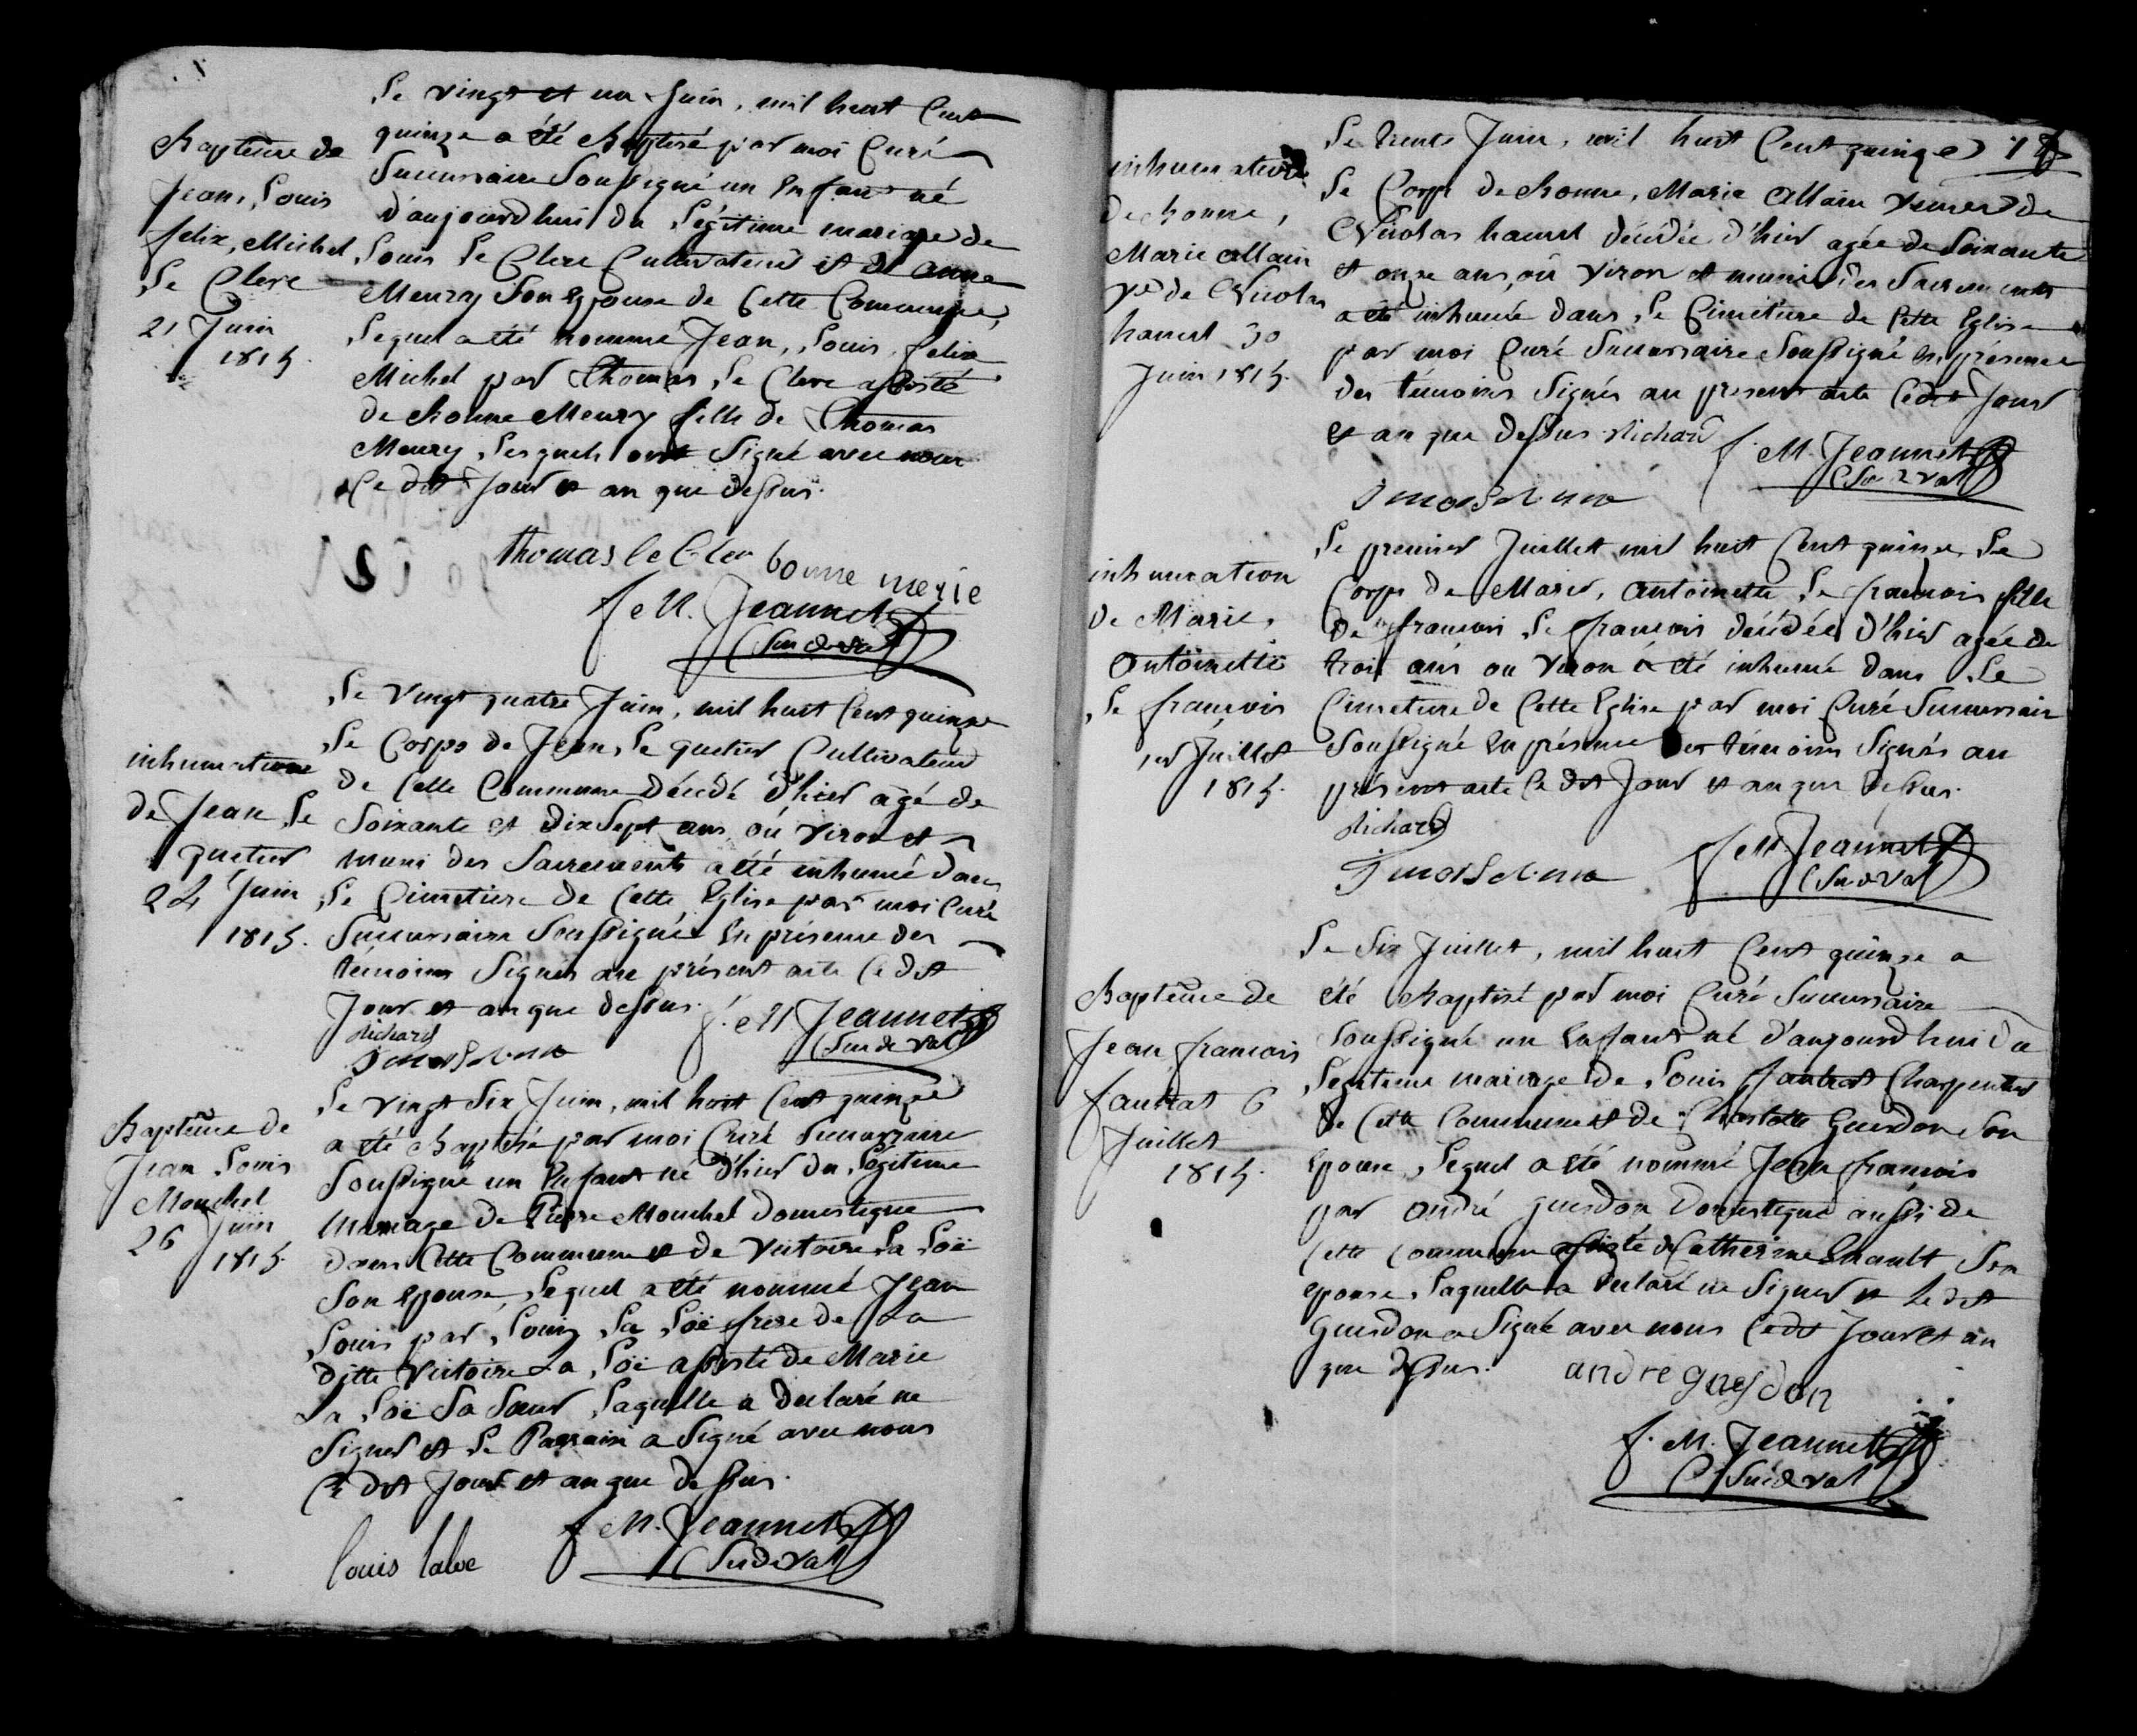 Baptême de
Jean, Louis
felix, Michel
Le Clerc
21 Juin
1815.
Le vingt et un Juin, mil huit Cent
quinze a été Baptisé par moi Curé
Succursaire Soussigné un Enfant né
d'aujourd'hui du Légitime mariage de
Louis Le Clerc Cultivateur et de anne
Meury Son Epouse de Cette Commune,
Lequel a été nommé Jean, Louis, felix
Michel par Thomas Le Clerc assisté
de Bonne Meury fille de Thomas
Meury Lesquels ont Signé avec nous
Ce dit Jour et an que dessus.
thomas le Cler bonne merie
f. M. Jeannet
C Surdeval
inhumation
de Jean Le
quetier
24 Juin
1815.
Le vingt quatre Juin, mil huit Cent quinze
Le Corps de Jean Le quetier Cultivateur
de Cette Commune décédé d'hier agé de
Soixante et dix Sept ans ou viron et
muni des Sacrements a été inhumé dans
Le Cimetiere de Cette Eglise par moi Curé
Succursaire Soussigné En présence des
témoins Signés au présent acte Ce dit
Jour et an que dessus.
Richard
f. M Jeannet
C Surdeval
Baptême de
Jean Louis
Mouchel
26 Juin
1815.
Le vingt Six Juin, mil huit Cent quinze
a été Baptisé par moi Curé Succursaire
Soussigné un Enfant né d'hier du Légitime
Mariage de Pierre Mouchel domestique
dans Cette Commune et de Victoire La Loë
Son Epouse, Lequel a été nommé Jean
Louis par Louis La Loë frere de La
ditte Victoire La Loë assisté de Marie
La Loë Sa Sœur Laquelle a declaré ne
Signer et Le Parrain a Signé avec nous
Ce dit Jour et an que dessus.
Louis laloe
f. M. Jeannet
C Surdeval
inhumation
de Bonne,
Marie allain
ve de Nicolas
hamel 30
Juin 1815.
Le trente Juin, mil huit Cent quinze
Le Corps de Bonne, Marie allain veuve de
Nicolas hamel décédée d'hier agée de Soixante
et onze ans, ou viron et munie des Sacrements
a été inhumée dans Le Cimetiere de Cette Eglise
par moi Curé Succursaire Soussigné En présence
des témoins Signés au present acte Ce dit Jour
et an que dessus. Richard
f. M. Jeannet
C Surdeval
inhumation
de Marie,
Antoinette
Le françois
1er Juillet
1815.
Le premier Juillet mil huit Cent quinze, Le
Corps de Marie, Antoinette Le françois fille
de françois Le françois décédée d'hier agée de
trois ans ou viron a été inhumé dans Le
Cimetiere de Cette Eglise par moi Curé Succursaire
Soussigné En présence des témoins Signés au
présent acte Ce dit Jour et an que dessus.
Richard
f. M Jeannet
C Surdeval
Baptême de
Jean françois
fautrat 6
Juillet
1815.
Le Six Juillet, mil huit Cent quinze a
été Baptisé par moi Curé Succursaire
Soussigné un Enfant né d'aujourd'hui du
Légitime mariage de Louis fautrat Charpentier
de Cette Commune et de Charlotte Guesdon Son
Epouse, Lequel a été nommé Jean françois
par André guesdon Domestique aussi de
Cette Commune assisté de Catherine Enault Son
Epouse, Laquelle a declaré ne Signer et Le dit
Guesdon a Signé avec nous Ce dit Jour et an
que dessus.
andre guesdon
f. M. Jeannet
C Surdeval